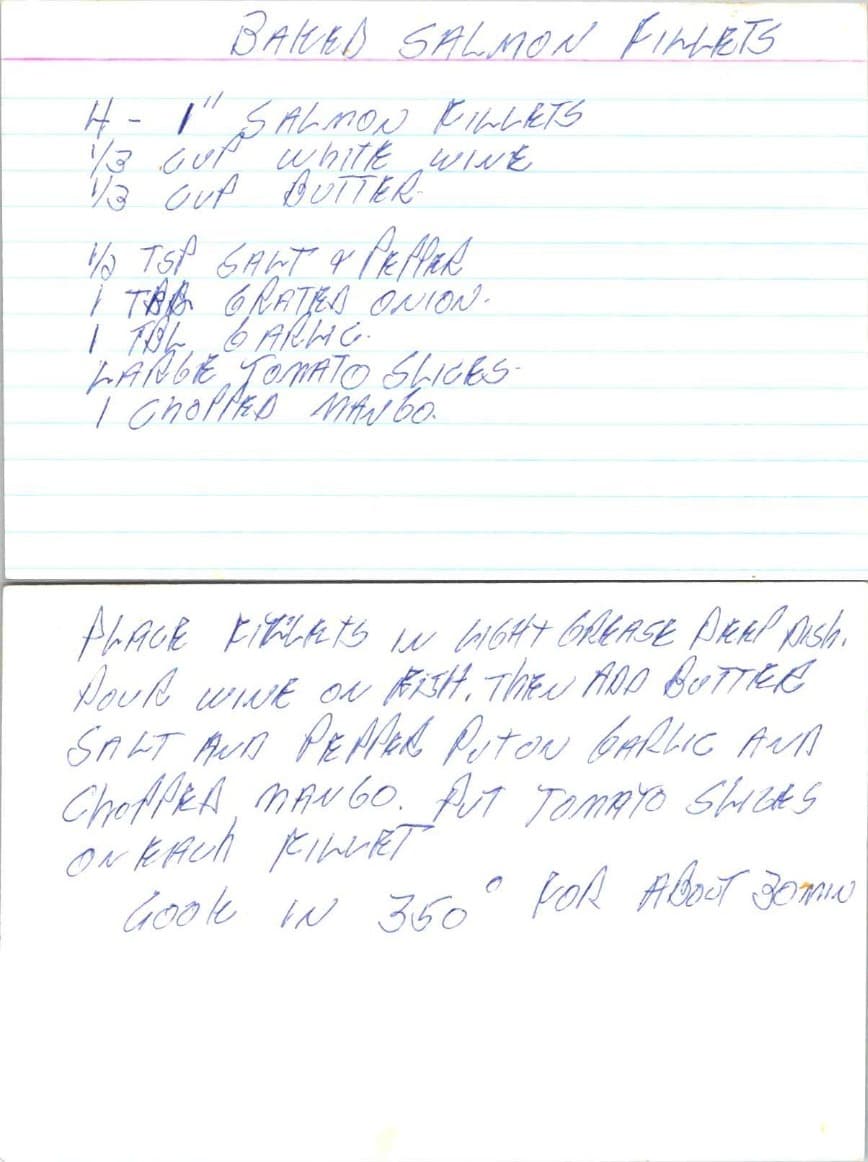 BAKED SALMON FILLETS
4 - 1" SALMON FILLETS
1/3 CUP WHITE WINE
1/3 CUP BUTTER
1/2 TSP SALT & PEPPER
1 TBL GRATED ONION.
1 TBL GARLIC.
LARGE TOMATO SLICES
1 CHOPPED MANGO.
PLACE FILLETS IN LIGHT GREASE DEEP DISH.
POUR WINE ON FISH. THEN ADD BUTTER
SALT AND PEPPER PUT ON GARLIC AND
CHOPPED MANGO. PUT TOMATO SLICES
ON EACH FILLET
COOK IN 350° FOR ABOUT 30 MIN